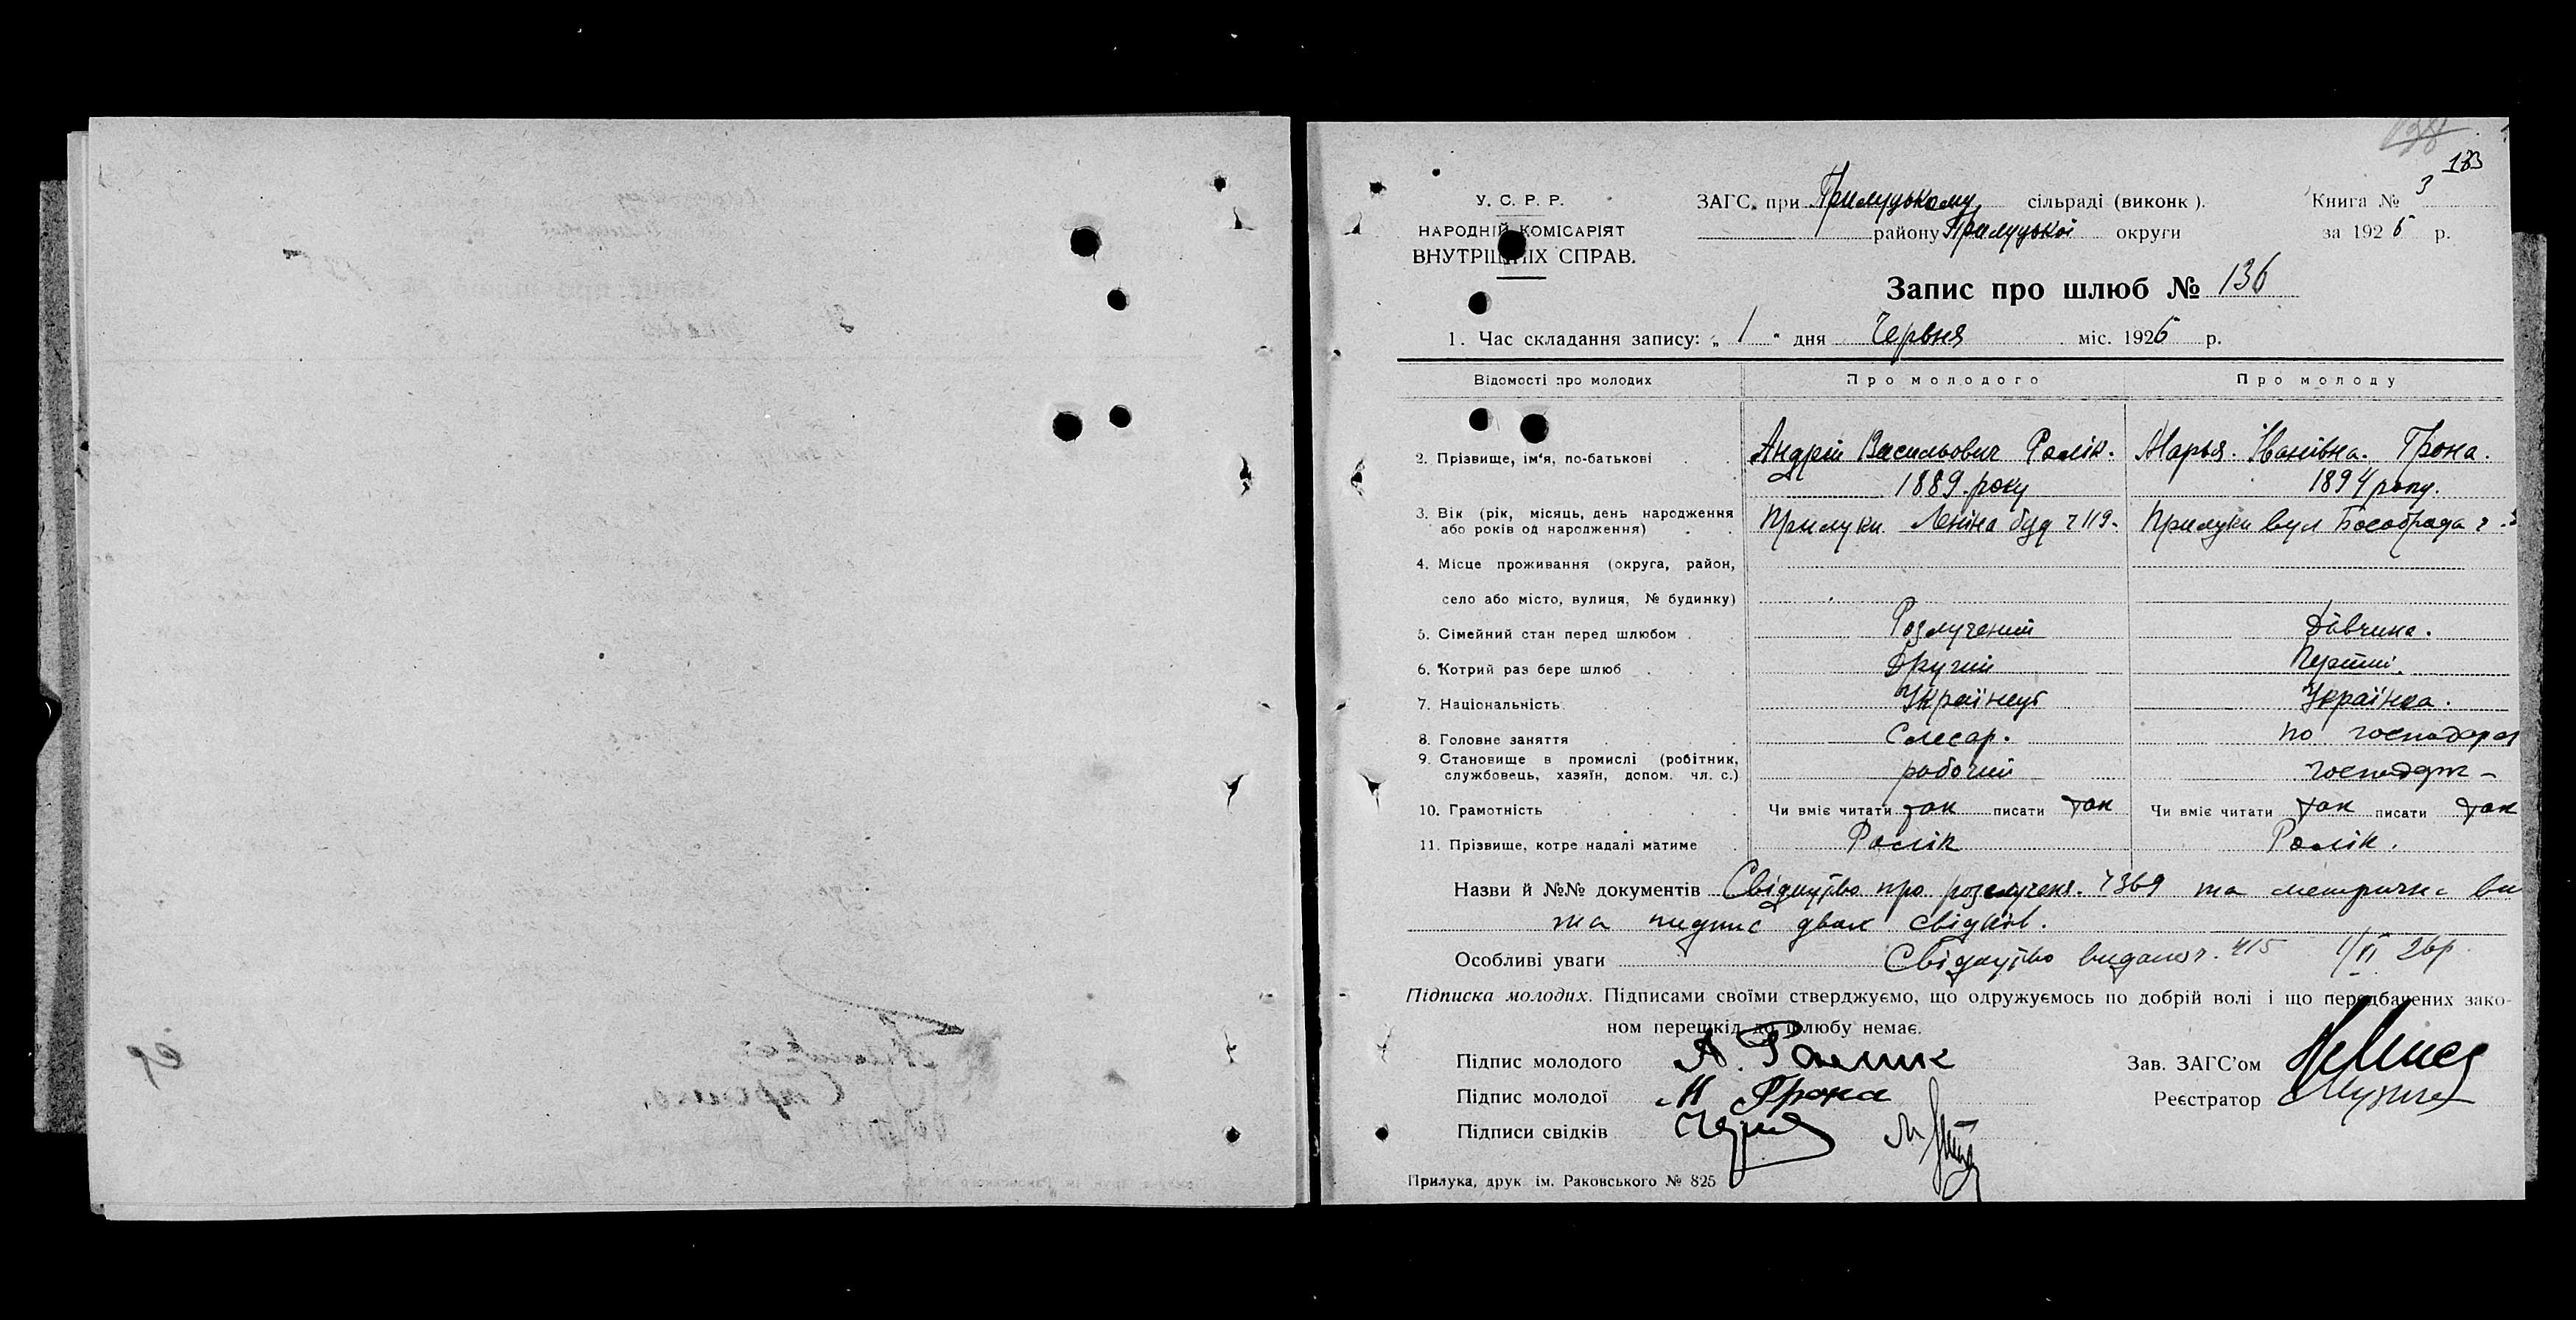 133
У. С. Р. Р.
НАРОДНІЙ КОМІСАРІЯТ
ВНУТРІШНІХ СПРАВ.
ЗАГС. при Прилуцькому сільраді (виконк).
району Прилуцької округи
Книга № 3
за 1926 р.
Запис про шлюб № 136
1. Час складання запису: „ 1 " дня Червня міс. 1926 р.
Відомості про молодих Про молодого Про молоду
2. Прізвище, ім'я, по-батькові Андрій Васильович Ролік. Марья. Іванівна. Грона.
1889 року 1894 року.
3. Вік (рік, місяць, день народження
або років од народження) Прилуки Леніна буд ч 119. Прилуки вул ч.
4. Місце проживання (округа, район,
село або місто, вулиця, № будинку)
5. Сімейний стан перед шлюбом Розлучений Дівчина.
6. Котрий раз бере шлюб Другий Перший.
7. Національність Українець Українка.
8. Головне заняття Слесар. по господар
9. Становище в промислі (робітник,
службовець, хазяїн, допом. чл. с.) рабочий господарк -
10. Грамотність Чи вміє читати так писати так Чи вміє читати так писати так
11. Прізвище, котре надалі матиме Ролік Ролік.
Назви й №№ документів Свідоцтво про розлученя. ч 369 та метричне ви
та підпис двох свідків.
Особливі уваги Свідоцтво видано ч. 415 1/VI 26 р.
Підписка молодих. Підписами своїми стверджуємо, що одружуємось по добрій волі і що передбачених зако-
ном перешкід до шлюбу немає.
Підпис молодого А. Ролик
Зав. ЗАГС'ом
Підпис молодої М Грона
Реєстратор
Підписи свідків
Прилука, друк ім. Раковського № 825